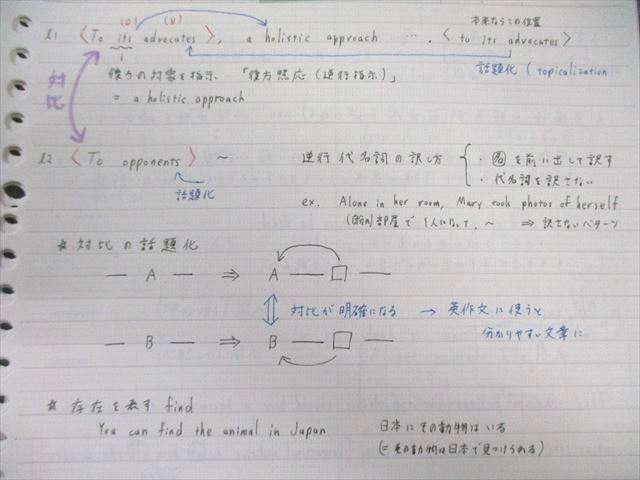 (O) (V) 本来ならこの位置
l1 〈To its advocates〉, a holistic approach …. 〈to its advocates〉
後ろの対象を指示 「後方照応(逆行指示)」 話題化 (topicalization
= a holistic approach
対比
l2 〈To opponents〉 ~ 逆行代名詞の訳し方 { ・名を前に出して訳す
話題化 ・代名詞を訳さない
ex. Alone in her room, Mary took photos of herself
部屋で1人になって, ~ ⇒ 訳さないパターン
* 対比の話題化
— A — ⇒ A — □ —
対比が明確になる → 英作文に使うと
分かりやすい文章に
— B — ⇒ B — □ —
* 存在を表す find
You can find the animal in Japan 日本にその動物はいる
(= その動物は日本で見つけうる)